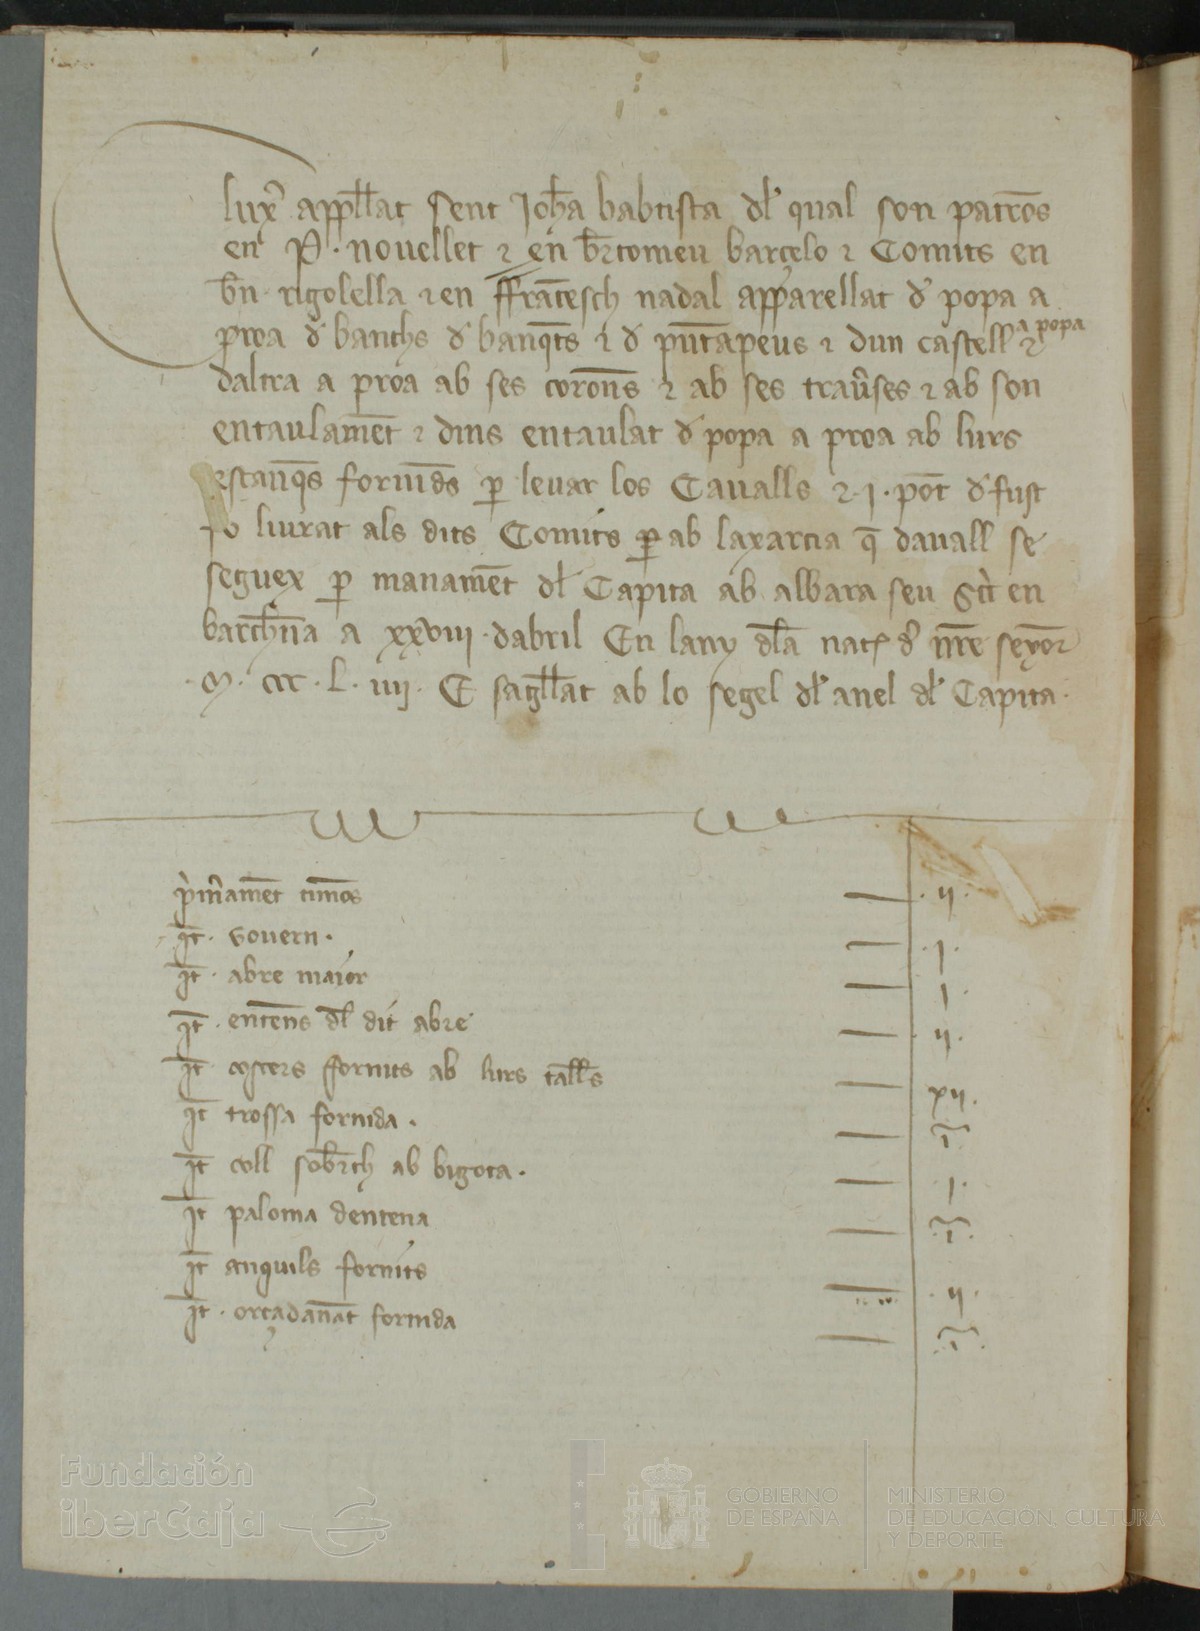 luxer appellat sent Joha babtista dl qual son patros
en P. nouellet ⁊ en brtomeu barçelo ⁊ Comits en
bn rigolella ⁊ en ffrancesch nadal apparellat d popa a
proa d banchs d banqts ⁊ d puntapeus ⁊ dun castell a popa ⁊
daltra a proa ab ses corones ⁊ ab ses trauses ⁊ ab son
entaulament ⁊ dins entaulat d popa a proa ab lurs
estanqs fornids p leuar los Caualls ⁊ .j. pont d fust
fo liurat als dits Comits p ab laxarcia q dauall se
seguex p manament dl Capita ab albara seu scrit en
barchna a xxviii. dabril En lany dla nat d nre seyor
.M. ccc. L. iiij. E sagellat ab lo segel dl anel dl Capita.
primament timos — .ij.
It. gouern. — .j.
It. abre maior — j.
It. entens dl dit abre — .ij.
It. costers ffornits ab lurs talls — xij.
It trossa fornida. — .i.
It coll sobrch ab bigota. — .j.
It paloma dentena — .i.
It anquils fornits — .ij.
It. orçadauant fornida — .i.
Fundación
iberCaja
GOBIERNO
DE ESPAÑA
MINISTERIO
DE EDUCACIÓN, CULTURA
Y DEPORTE